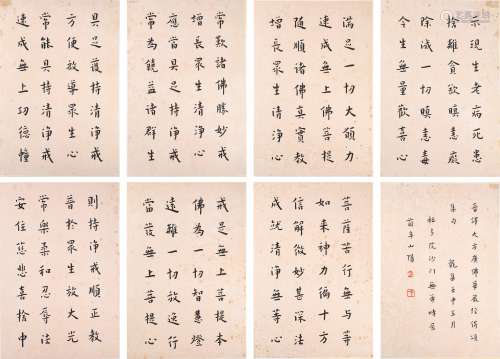 示現生老病死患
捨離貪欲瞋恚癡
除滅一切瞋恚毒
令生無量歡喜心
滿足一切大願力
速成無上佛菩提
隨順諸佛真實教
增長眾生清淨心
常歎諸佛勝妙戒
增長眾生清淨心
應當具足持淨戒
常為饒益諸群生
具足護持清淨戒
方便導眾生心
常能具持清淨戒
速成無上功德幢
晉譯大方廣佛華嚴經偈頌
集句 歲集壬申三月
沙門無等時居
菩薩苦行無與等
如來神力徧十方
信解微妙甚深法
成就清淨心
戒是無上菩提本
佛為一切智慧燈
遠離一切行
當發無上菩提心
則持淨戒順正教
普於眾生放大光
常樂柔和忍辱法
安住慈悲喜捨中